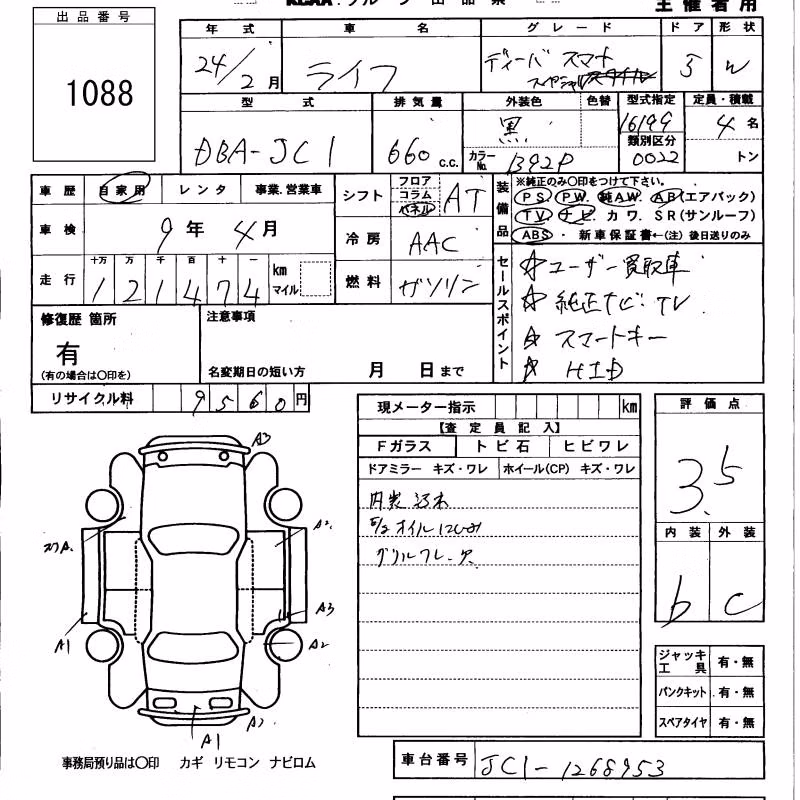 KCAA・グループ 出品票 主催者用
出品番号
1088
年式 車名 グレード ドア 形状
24/2月 ライフ ディーバスマート スペシャル 5 W
型式 排気量 外装色 色替 型式指定 定員・積載
DBA-JC1 660 c.c. 黒 カラーNo. B92P 16199 類別区分 0022 4名 トン
車歴 自家用 レンタ 事業.営業車
車検 9年4月
走行 十万 万 千 百 十 一 km マイル
121474
シフト フロア コラム パネル AT
冷房 AAC
燃料 ガソリン
装備品 ※純正のみ〇印をつけて下さい。
PS. PW. 純AW. AB(エアバック)
TV. ナビ. カワ. SR(サンルーフ)
ABS. 新車保証書←(注)後日送りのみ
セールスポイント
☆ユーザー買取車
☆純正ナビ・TV
☆スマートキー
☆HID
修復歴 箇所 注意事項
有
(有の場合は〇印を) 名変期日の短い方 月 日まで
リサイクル料 9560円
現メーター指示 km
【査定員記入】
Fガラス トビ石 ヒビワレ
ドアミラー キズ・ワレ ホイール(CP) キズ・ワレ
オイルにじみ
評価点
3.5
内装 外装
b C
ジャッキ 工具 有・無
パンクキット 有・無
スペアタイヤ 有・無
A3
A3
A1 A2
A1
事務局預り品は〇印 カギ リモコン ナビロム
車台番号 JC1-1268953